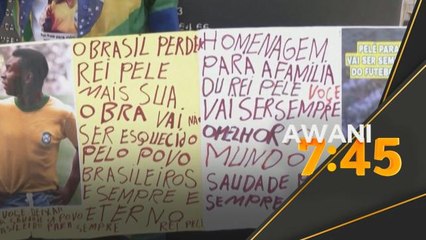 O BRASIL PERDEU
REI PELE
MAIS SUA
O BRA VAI NAO
SER ESQUECIDO
PELO POVO
BRASILEIROS
E SEMPRE E
ETERNO
REI PELE
HOMENAGEM
PARA A FAMILIA
DU REI PELE VOCE
VAI SER SEMPRE
O MELHOR
MUNDO
SAUDADE
SEMPRE
PELÉ PARA
VAI SER SEM
DO FUTEB
AWANI
7:45